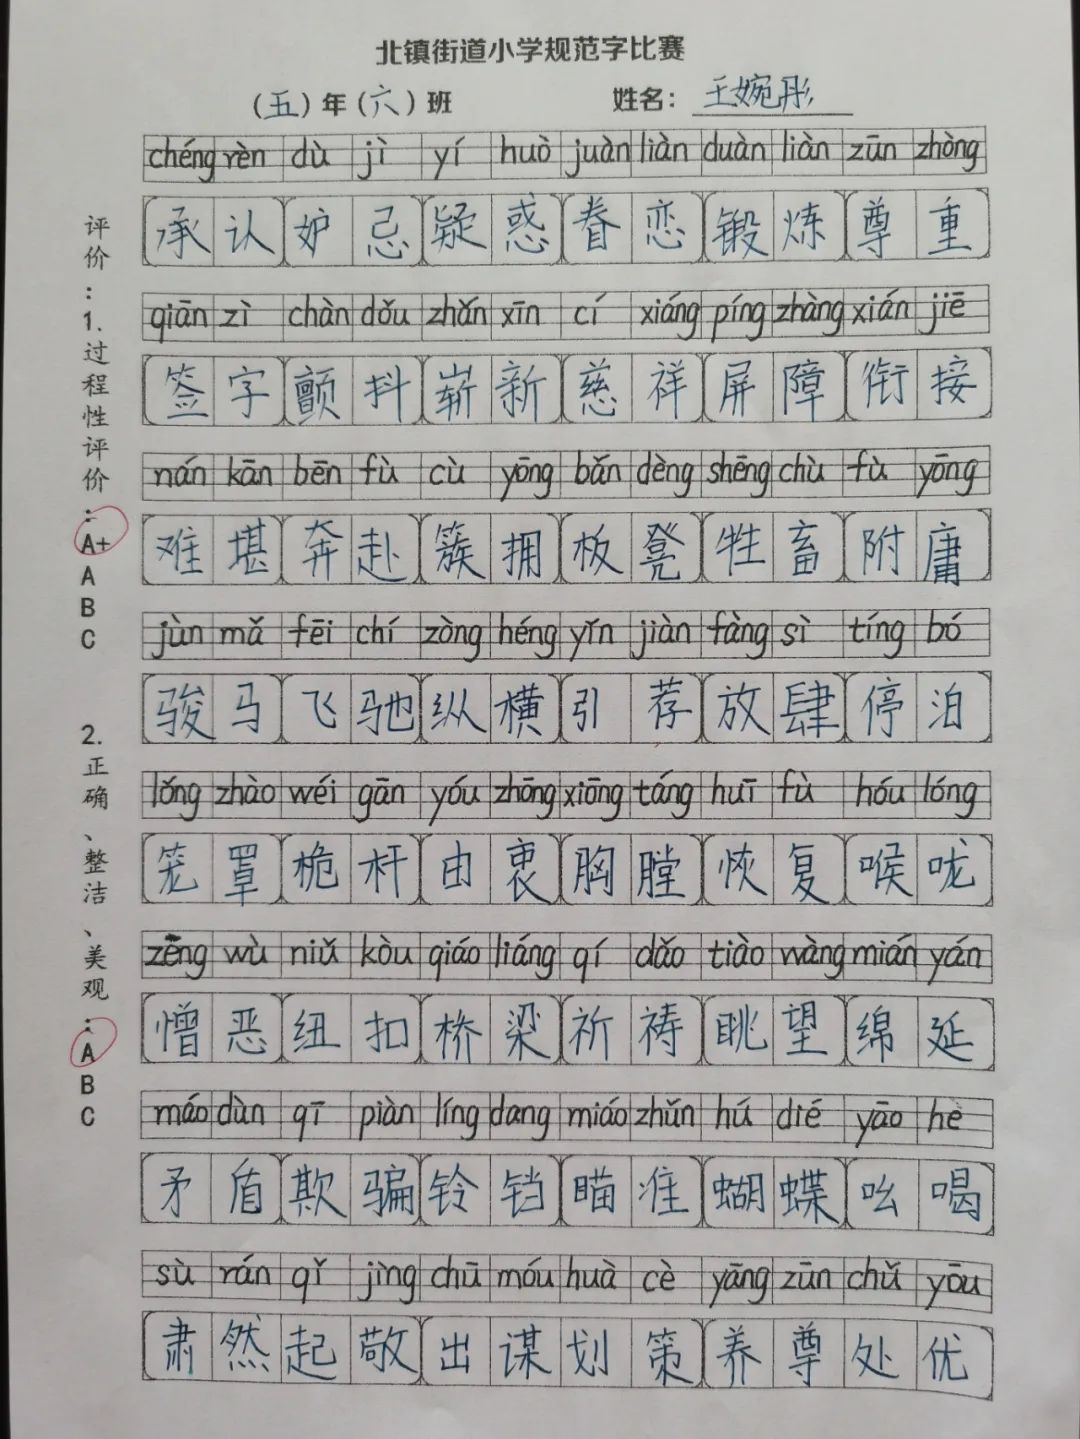 北镇街道小学规范字比赛
（五）年（六）班 姓名：王婉彤
chéng rèn dù jì yí huò juàn liàn duàn liàn zūn zhòng
承认妒忌疑惑眷恋锻炼尊重
qiān zì chàn dǒu zhǎn xīn cí xiáng píng zhàng xián jiē
签字颤抖崭新慈祥屏障衔接
nán kān bēn fù cù yōng bǎn dèng shēng chù fù yōng
难堪奔赴簇拥板凳牲畜附庸
jùn mǎ fēi chí zòng héng yǐn jiàn fàng sì tíng bó
骏马飞驰纵横引荐放肆停泊
lǒng zhào wéi gān yóu zhōng xiōng táng huī fù hóu lóng
笼罩桅杆由衷胸膛恢复喉咙
zēng wù niǔ kòu qiáo liáng qí dǎo tiào wàng mián yán
憎恶纽扣桥梁祈祷眺望绵延
máo dùn qī piàn líng dang miáo zhǔn hú dié yāo hè
矛盾欺骗铃铛瞄准蝴蝶吆喝
sù rán qǐ jìng chū móu huà cè yǎng zūn chǔ yōu
肃然起敬出谋划策养尊处优
评价：1.过程性评价：A+ A B C
2.正确、整洁、美观：A B C